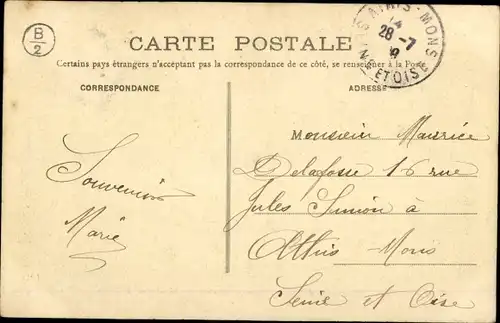 B/2
ATHIS-MONS
14
28-7
SEINE ET OISE
CARTE POSTALE
Certains pays étrangers n'acceptant pas la correspondance de ce côté, se renseigner à la Poste
CORRESPONDANCE
ADRESSE
Souvenir
Marie
Monsieur Maurice
Delafosse 16 rue
Jules Simon à
Athis Mons
Seine et Oise